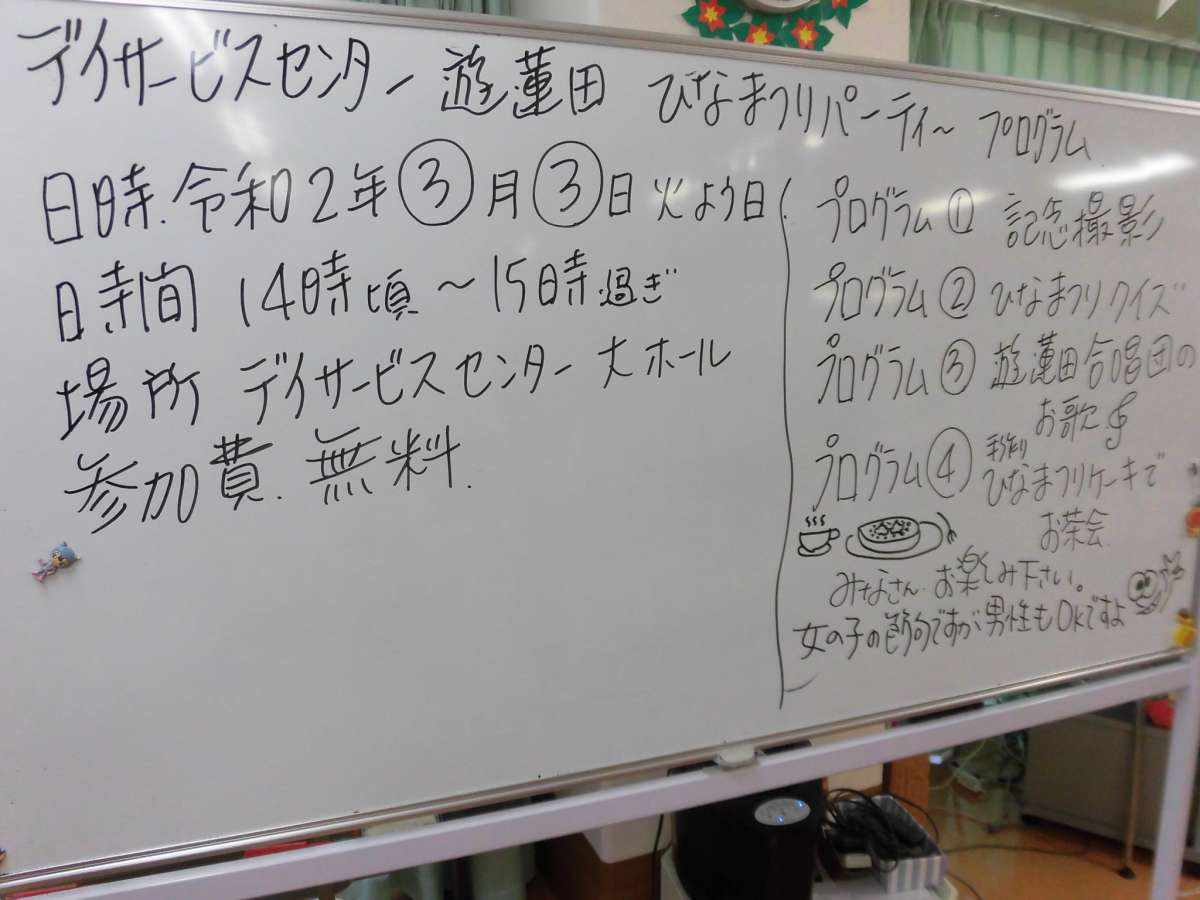 デイサービスセンター 遊蓮田 ひなまつりパーティ～ プログラム
日時.令和2年③月③日 火よう日
時間 14時頃～15時過ぎ
場所 デイサービスセンター大ホール
参加費.無料.
プログラム① 記念撮影
プログラム② ひなまつりクイズ
プログラム③ 遊蓮田合唱団の
お歌
プログラム④ 手作り
ひなまつりケーキで
お茶会.
みなさん.お楽しみ下さい。
女の子の節句ですが、男性もOKですよ